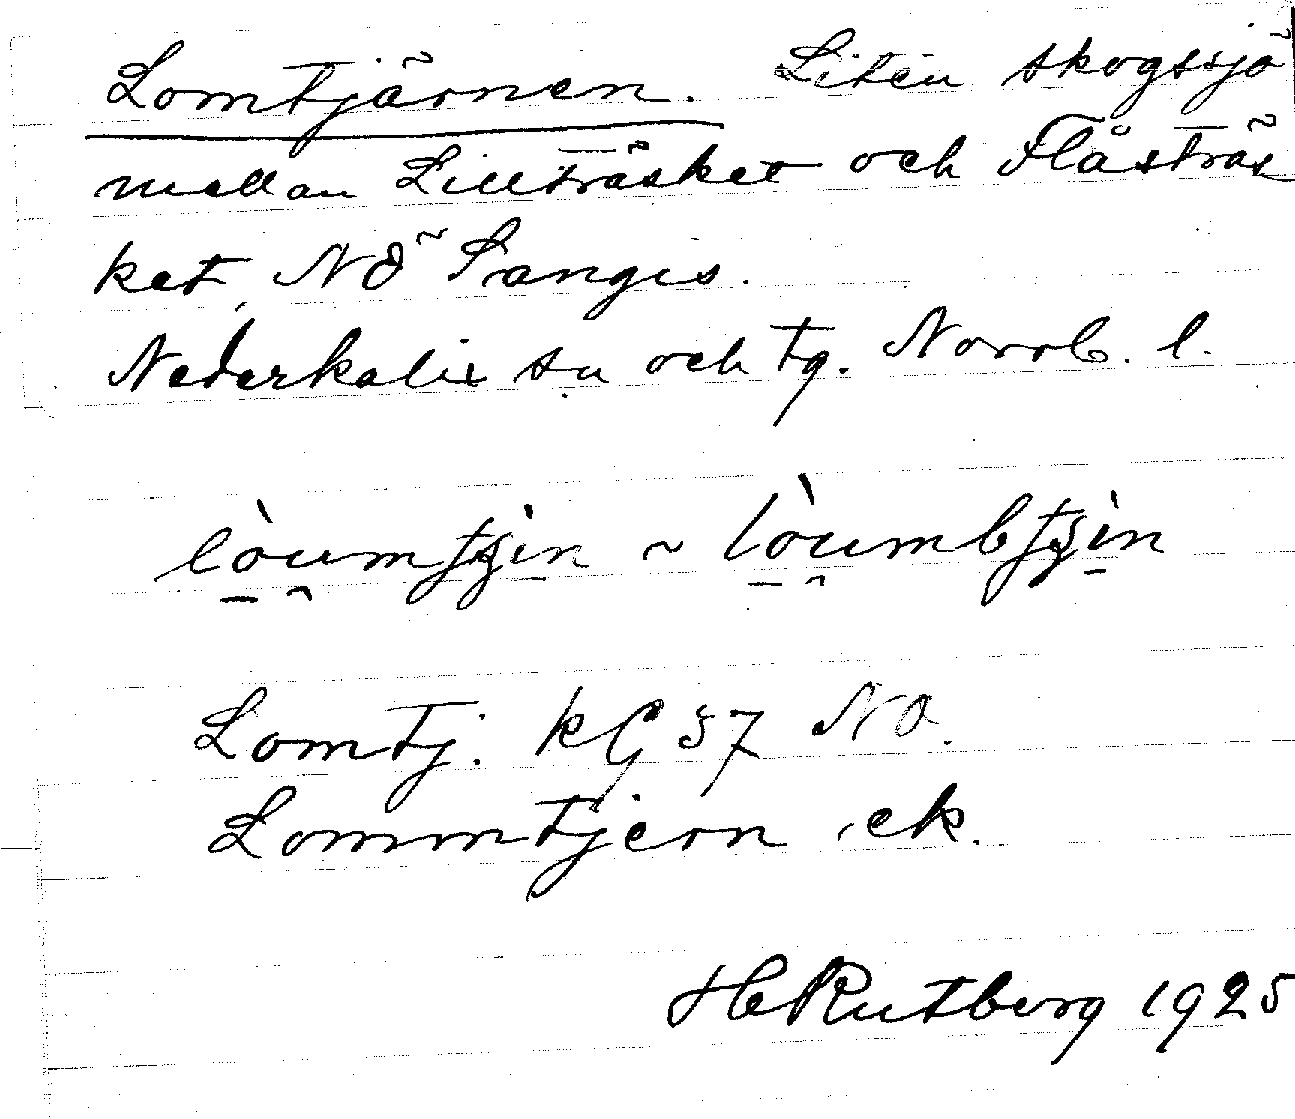 Lomtjärnen. Liten skogssjö
mellan Lillträsket och Flåsträs
ket, NÖ Sangis.
Nederkalix sn och tg. Norrb. l.
lòumtʂìn ~ lòumbtʂìn
Lomtj. kG 57 NO.
Lommtjern ek.
H Rutberg 1925